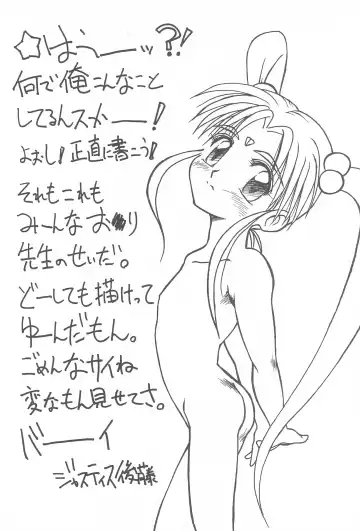 ☆はうーッ?!
何で俺こんなこと
してるんスかー!
よおし!正直に書こう!
それもこれも
みーんなおり
先生のせいだ。
どーしても描けって
ゆーんだもん。
ごめんなサイね
変なもん見せてさ。
バーイ
ジャスティス後藤